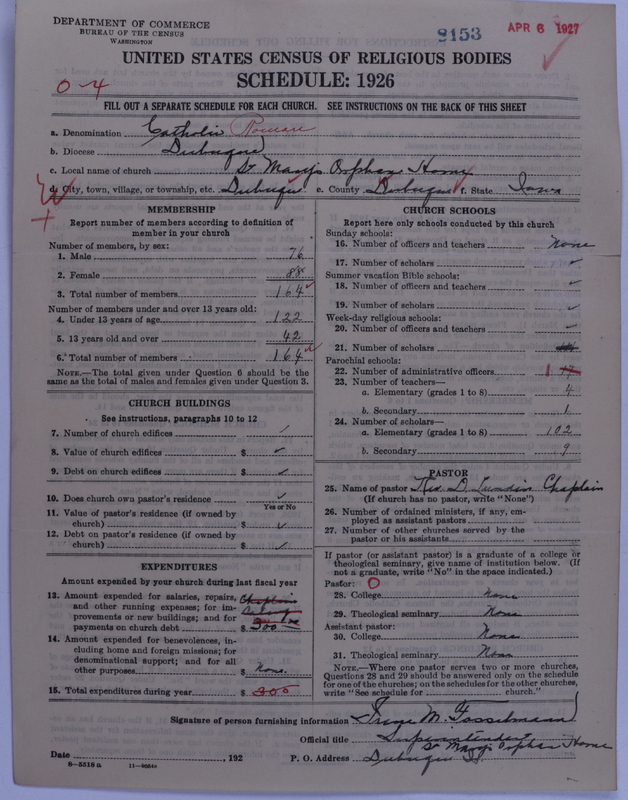 DEPARTMENT OF COMMERCE
BUREAU OF THE CENSUS
WASHINGTON
9153
APR 6 1927
UNITED STATES CENSUS OF RELIGIOUS BODIES
SCHEDULE: 1926
0-4
FILL OUT A SEPARATE SCHEDULE FOR EACH CHURCH. SEE INSTRUCTIONS ON THE BACK OF THIS SHEET
a. Denomination Catholic Roman
b. Diocese Dubuque
c. Local name of church St Mary's Orphan Home
d. City, town, village, or township, etc. Dubuque e. County Dubuque f. State Iowa
MEMBERSHIP
Report number of members according to definition of
member in your church
Number of members, by sex:
1. Male 76
2. Female 88
3. Total number of members 164
Number of members under and over 13 years old:
4. Under 13 years of age 122
5. 13 years old and over 42
6. Total number of members 164
NOTE.—The total given under Question 6 should be
same as the total of males and females given under Question 3.
CHURCH BUILDINGS
See instructions, paragraphs 10 to 12
7. Number of church edifices
8. Value of church edifices $
9. Debt on church edifices $
10. Does church own pastor's residence
Yes or No
11. Value of pastor's residence (if owned by
church) $
12. Debt on pastor's residence (if owned by
church) $
EXPENDITURES
Amount expended by your church during last fiscal year
13. Amount expended for salaries, repairs, Chaplain
and other running expenses; for im- Salary
provements or new buildings; and for
payments on church debt $ 300
14. Amount expended for benevolences, in-
cluding home and foreign missions; for
denominational support; and for all
other purposes $ None.
15. Total expenditures during year $ 300
CHURCH SCHOOLS
Report here only schools conducted by this church
Sunday schools:
16. Number of officers and teachers None
17. Number of scholars
Summer vacation Bible schools:
18. Number of officers and teachers
19. Number of scholars
Week-day religious schools:
20. Number of officers and teachers
21. Number of scholars
Parochial schools:
22. Number of administrative officers 1
23. Number of teachers—
a. Elementary (grades 1 to 8) 4
b. Secondary 1
24. Number of scholars—
a. Elementary (grades 1 to 8) 102
b. Secondary 9
PASTOR
25. Name of pastor Rev. D. Lundin Chaplain
(If church has no pastor, write "None")
26. Number of ordained ministers, if any, em-
ployed as assistant pastors
27. Number of other churches served by the
pastor or his assistants
If pastor (or assistant pastor) is a graduate of a college or
theological seminary, give name of institution below. (If
not a graduate, write "No" in the space indicated.)
Pastor: O
28. College None
29. Theological seminary None
Assistant pastor:
30. College None
31. Theological seminary None
NOTE.—Where one pastor serves two or more churches,
Questions 28 and 29 should be answered only on the schedule
for one of the churches; on the schedules for the other churches,
write "See schedule for church."
Signature of person furnishing information Irene M. Fosselmann
Official title Superintendent
St Mary's Orphan Home
Date , 192 P. O. Address Dubuque Ia.
8-5518 a